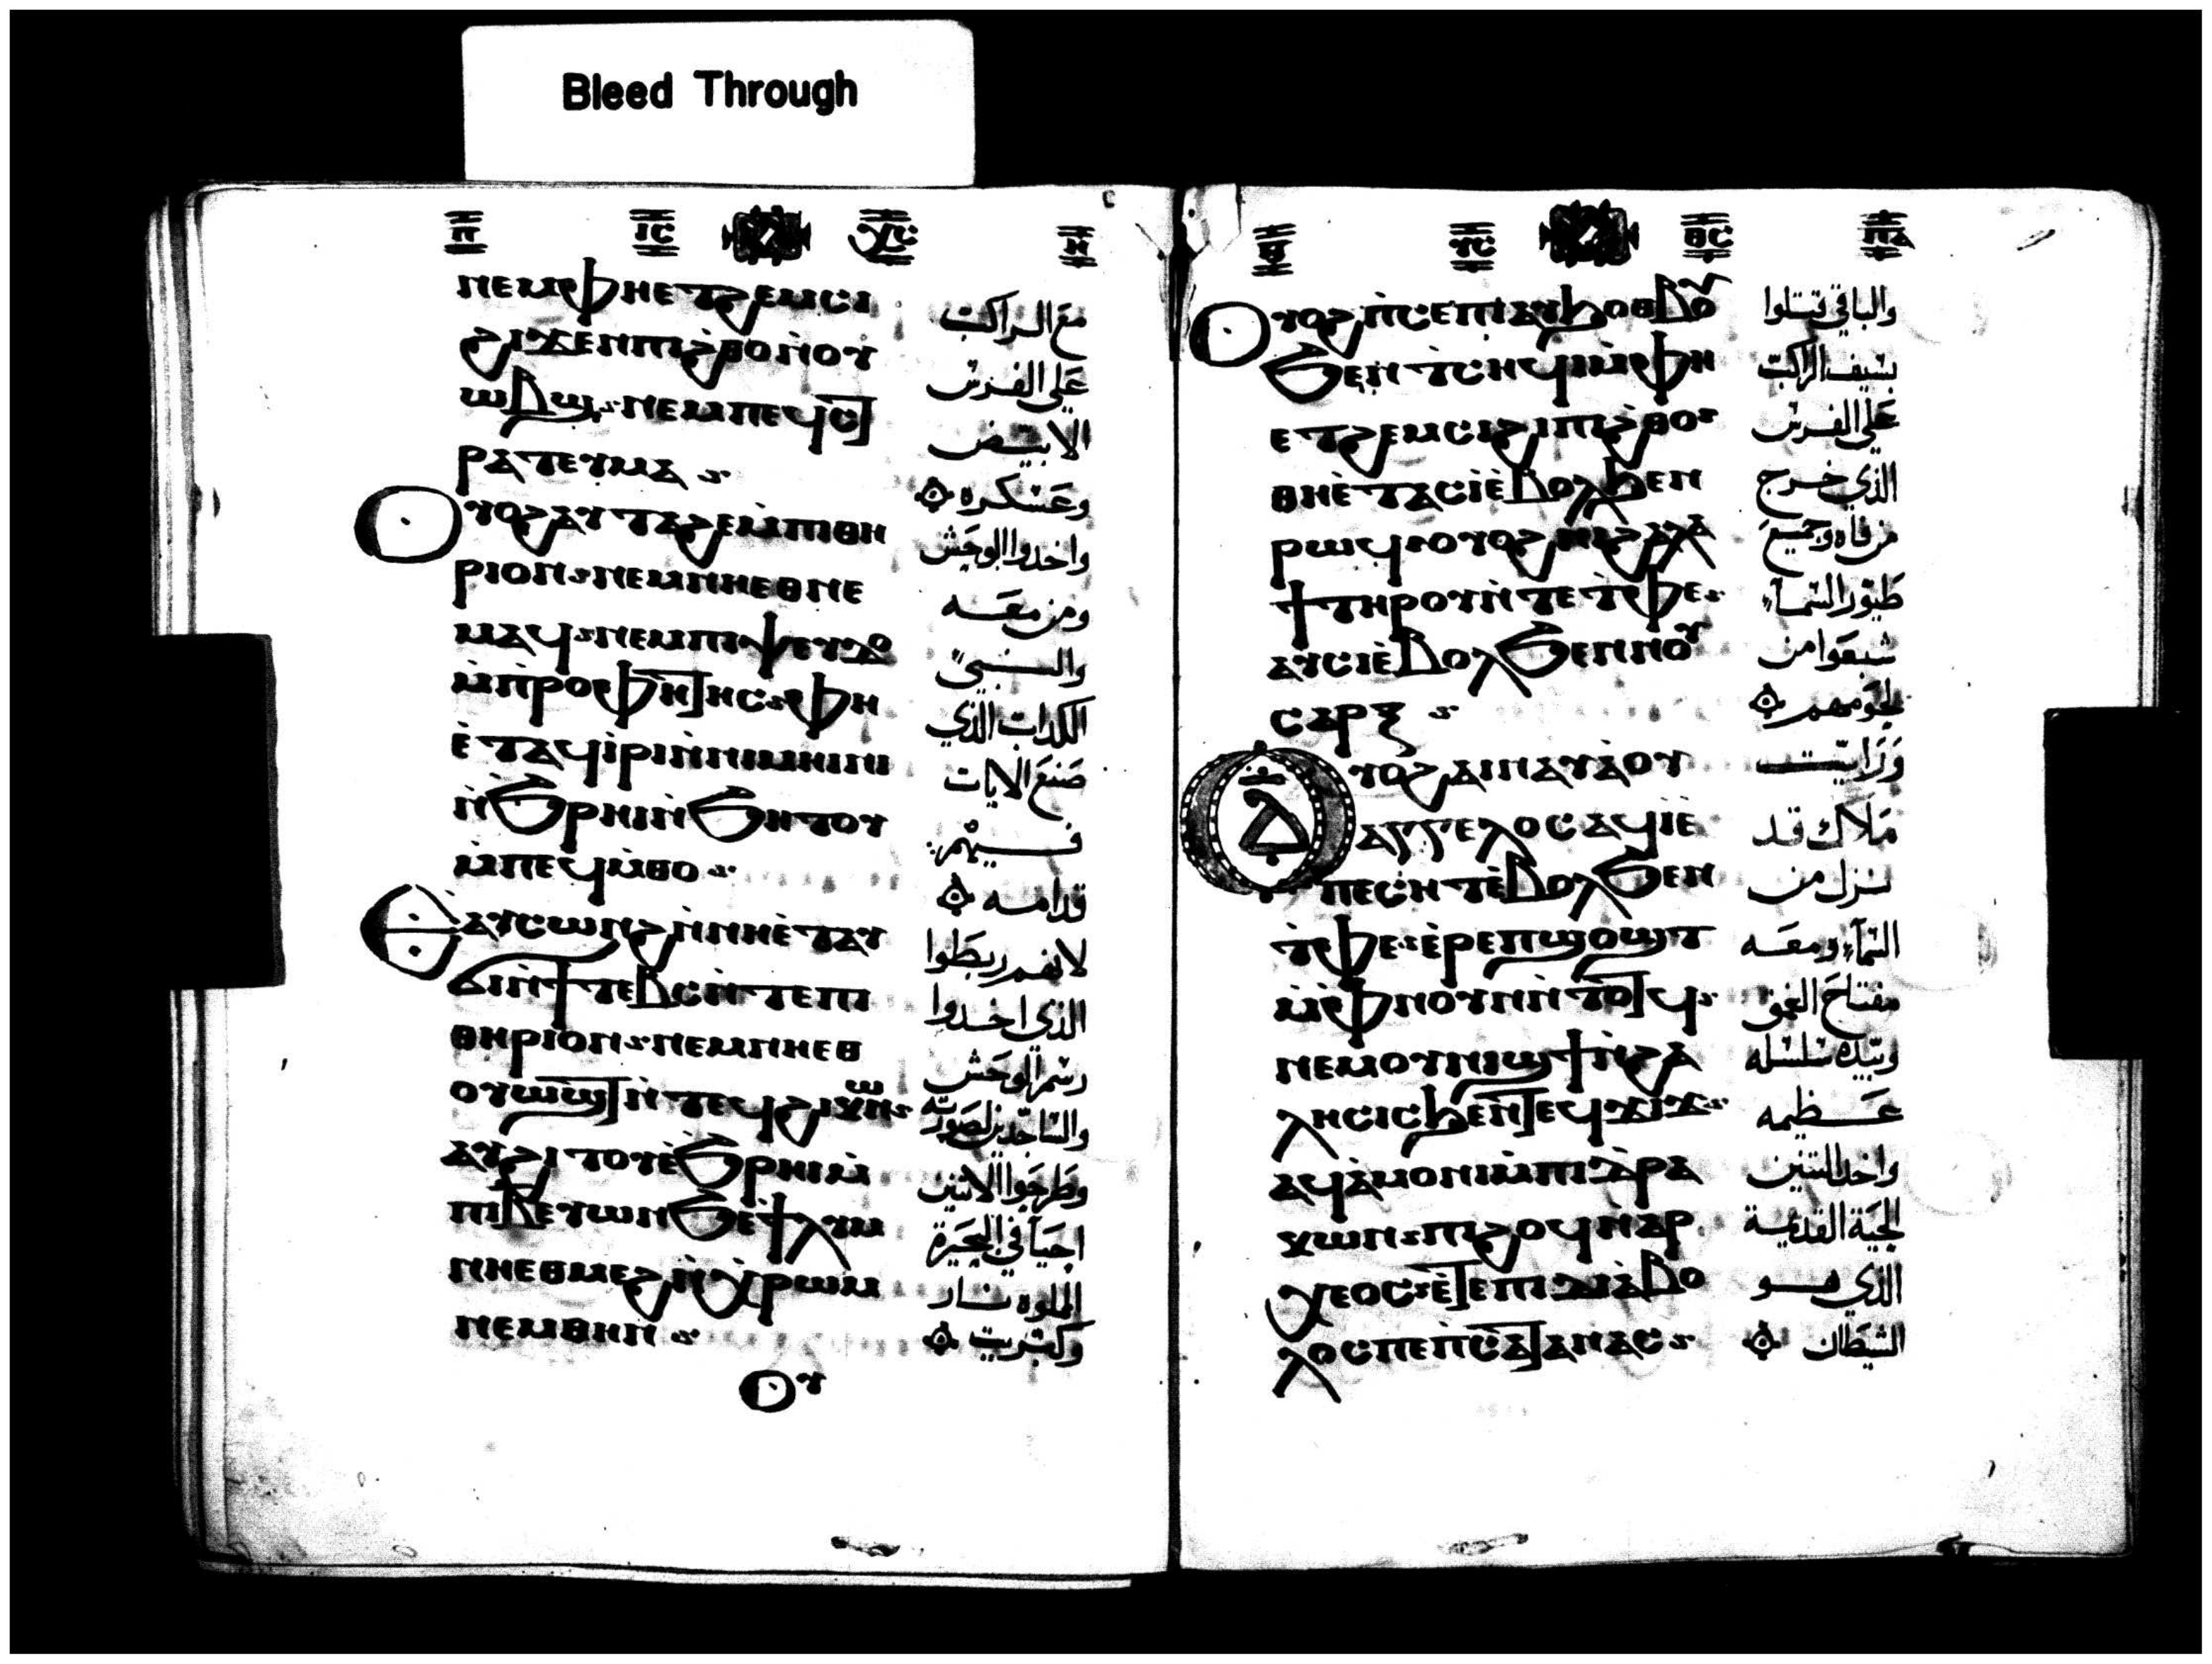 Bleed Through
ⲡ ⲓⲥ ⲭⲥ ⲏ
ⲛⲉⲙⲫⲏⲉⲧϩⲉⲙⲥⲓ
ϩⲓϫⲉⲛⲡⲓϩ̀ⲑⲟⲛ̀ⲟⲩ
ⲱⲃϣ ⲛⲉⲙⲡⲉϥⲥⲧ
ⲣⲁⲧⲉⲩⲙⲁ
ⲟⲩⲟϩⲁⲩⲧⲁϩⲉⲙ̀ⲡⲓⲑⲏ
ⲣⲓⲟⲛ ⲛⲉⲙⲛⲏⲉⲑⲛⲉ
ⲙⲁϥ ⲛⲉⲙⲡⲓⲯⲉⲩⲇⲟ
ⲙ̀ⲡ̀ⲣⲟⲫⲏⲧⲏⲥ ⲫⲏ
ⲉ̀ⲧⲁϥⲓ̀ⲣⲓⲛ̀ⲛⲓⲙⲏⲓⲛⲓ
ⲛ̀ϧⲣⲏⲓⲛ̀ϧⲏⲧⲟⲩ
ⲙ̀ⲡⲉϥⲙ̀ⲑⲟ
ⲉⲁⲩⲥⲱⲛϩⲛ̀ⲛⲏⲉ̀ⲧⲁⲩ
ϭⲓⲛ̀ϯⲧⲉⲃⲥⲛ̀ⲧⲉⲡⲓ
ⲑⲏⲣⲓⲟⲛ ⲛⲉⲙⲛⲏⲉⲑ
ⲟⲩⲱϣⲧⲛ̀ⲧⲉϥϩⲓⲕⲱⲛ
ⲁⲩϩⲓⲧⲟⲩⲉ̀ϧⲣⲏⲓⲙ̀
ⲡⲓⲃⲉⲩⲱⲛϧⲉϯⲗⲩⲙ
ⲛⲏⲉⲑⲙⲉϩⲛ̀ⲭ̀ⲣⲱⲙ
ⲛⲉⲙⲑⲏⲛ
ⲟⲩ
مع الراكب
على الفرس
الابيض
وعسكره
واخدوا الوحش
ومن معه
والنبي
الكداب الذي
صنع الايات
فيهم
قدامه
لانهم ربطوا
الذي اخدوا
رسم الوحش
والساجدين لصورته
وطرحوا الاتنين
احيآ في البحيرة
المملوه نار
وكبريت
ⲩⲥ ⲑⲥ ⲡⲁ
ⲟⲩⲟϩⲡ̀ⲥⲉⲡⲓⲁⲩϧⲟⲑⲃⲟⲩ
ϧⲉⲛⲧ̀ⲥⲏϥⲓⲙ̀ⲫⲏ
ⲉⲧϩⲉⲙⲥⲓϩⲓⲡⲓϩ̀ⲑⲟ
ⲑⲏⲉ̀ⲧⲁⲥⲓ̀ⲉ̀ⲃⲟⲗϧⲉⲛ
ⲣⲱϥ ⲟⲩⲟϩⲛⲓϩⲁⲗⲁ
ϯⲧⲏⲣⲟⲩⲛ̀ⲧⲉⲧ̀ⲫⲉ
ⲁⲩⲥⲓⲉ̀ⲃⲟⲗϧⲉⲛⲛⲟⲩ
ⲥⲁⲣⲝ
ⲟⲩⲟϩⲁⲓⲛⲁⲩⲁ̀ⲟⲩ
ⲁⲅⲅⲉⲗⲟⲥⲁϥⲓ̀ⲉ̀
ⲡⲉⲥⲏⲧⲉ̀ⲃⲟⲗϧⲉⲛ
ⲧ̀ⲫⲉ ⲉ̀ⲣⲉⲡϣⲟϣⲧ
ⲙ̀ⲫⲛⲟⲩⲛⲛ̀ⲧⲟⲧϥ
ⲛⲉⲙⲟⲩⲛⲓϣϯⲛ̀ϩⲁ
ⲗⲏⲥⲓⲥϧⲉⲛⲧⲉϥϫⲓϫ
ⲁϥⲁ̀ⲙⲟⲛⲓⲙ̀ⲡⲓⲇ̀ⲣⲁ
ⲕⲱⲛ ⲡⲓϩⲟϥⲛⲁⲣ
ⲭⲉⲟⲥ ⲉ̀ⲧⲉⲡⲓⲇⲓⲁ̀ⲃⲟ
ⲗⲟⲥⲡⲉⲡ̀ⲥⲁⲧⲁⲛⲁⲥ
والباقي قتلوا
بسيف الراكب
على الفرس
الذي خرج
من فاه وجميع
طيور السمآء
شبعوا من
لحومهم
ورايت
ملاك قد
نزل من
السمآء ومعه
مفتاح العمق
وبيده سلسله
عظيمه
واخد التنين
الحية القديمة
الذي هو
الشيطان